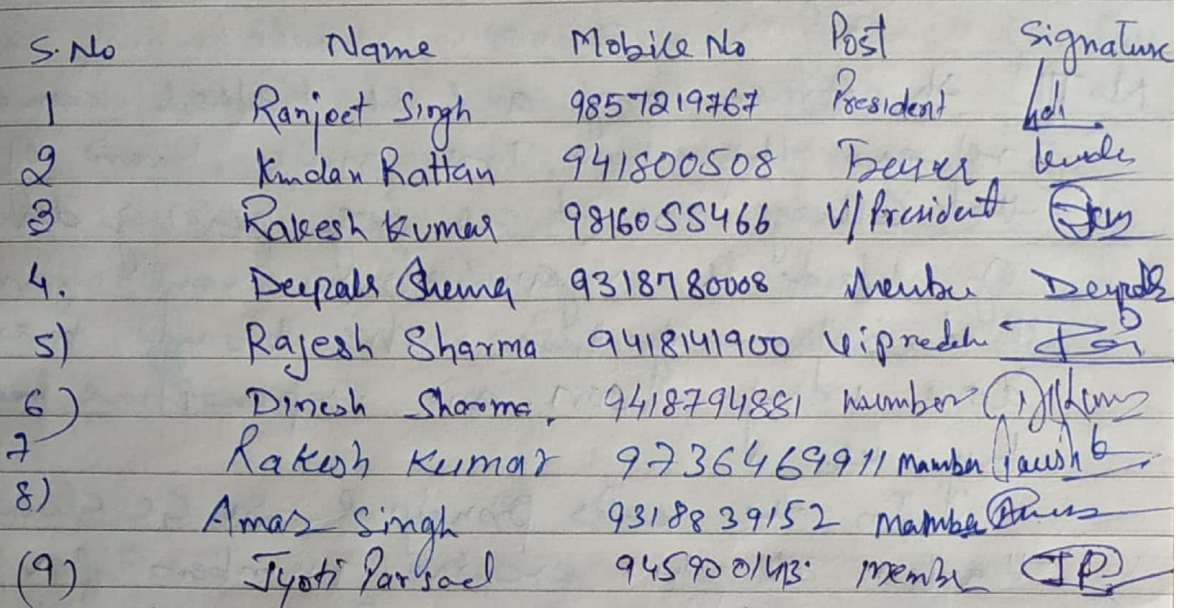 S. No Name Mobile No Post Signature
1 Ranjeet Singh 9857219767 President
2 Kundan Rattan 941800508
3 Rakesh Kumar 9816055466 V/President
4. Deepak Sharma 9318780008 Member Deepak
5) Rajesh Sharma 9418141900
6) Dinesh Sharma 9418794881
7 Rakesh Kumar 9736469911 Mamber
8) Amar Singh 9318839152 Mamber
(9) Jyoti Parsad member JP